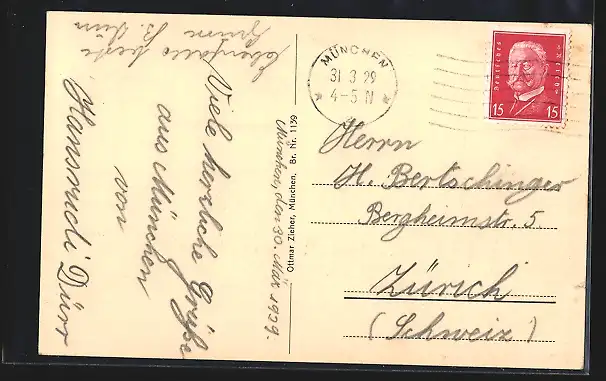 München, den 30. März 1929.
Viele herzliche Grüße
aus München
von
Hansruedi Dürr
Ebenfalls beste
Ottmar Zieher, München. Br. Nr. 1139
MÜNCHEN
31 3 29
4-5 N
Deutsches Reich
15 15
Herrn
H. Bertschinger
Bergheimstr. 5.
Zürich
(Schweiz)